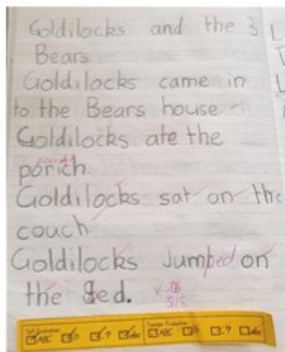 Goldilocks and the 3
Bears
Goldilocks came in
to the Bears house
Goldilocks ate the
porich.
Goldilocks sat on the
couch.
Goldilocks Jumped on
the Bed.